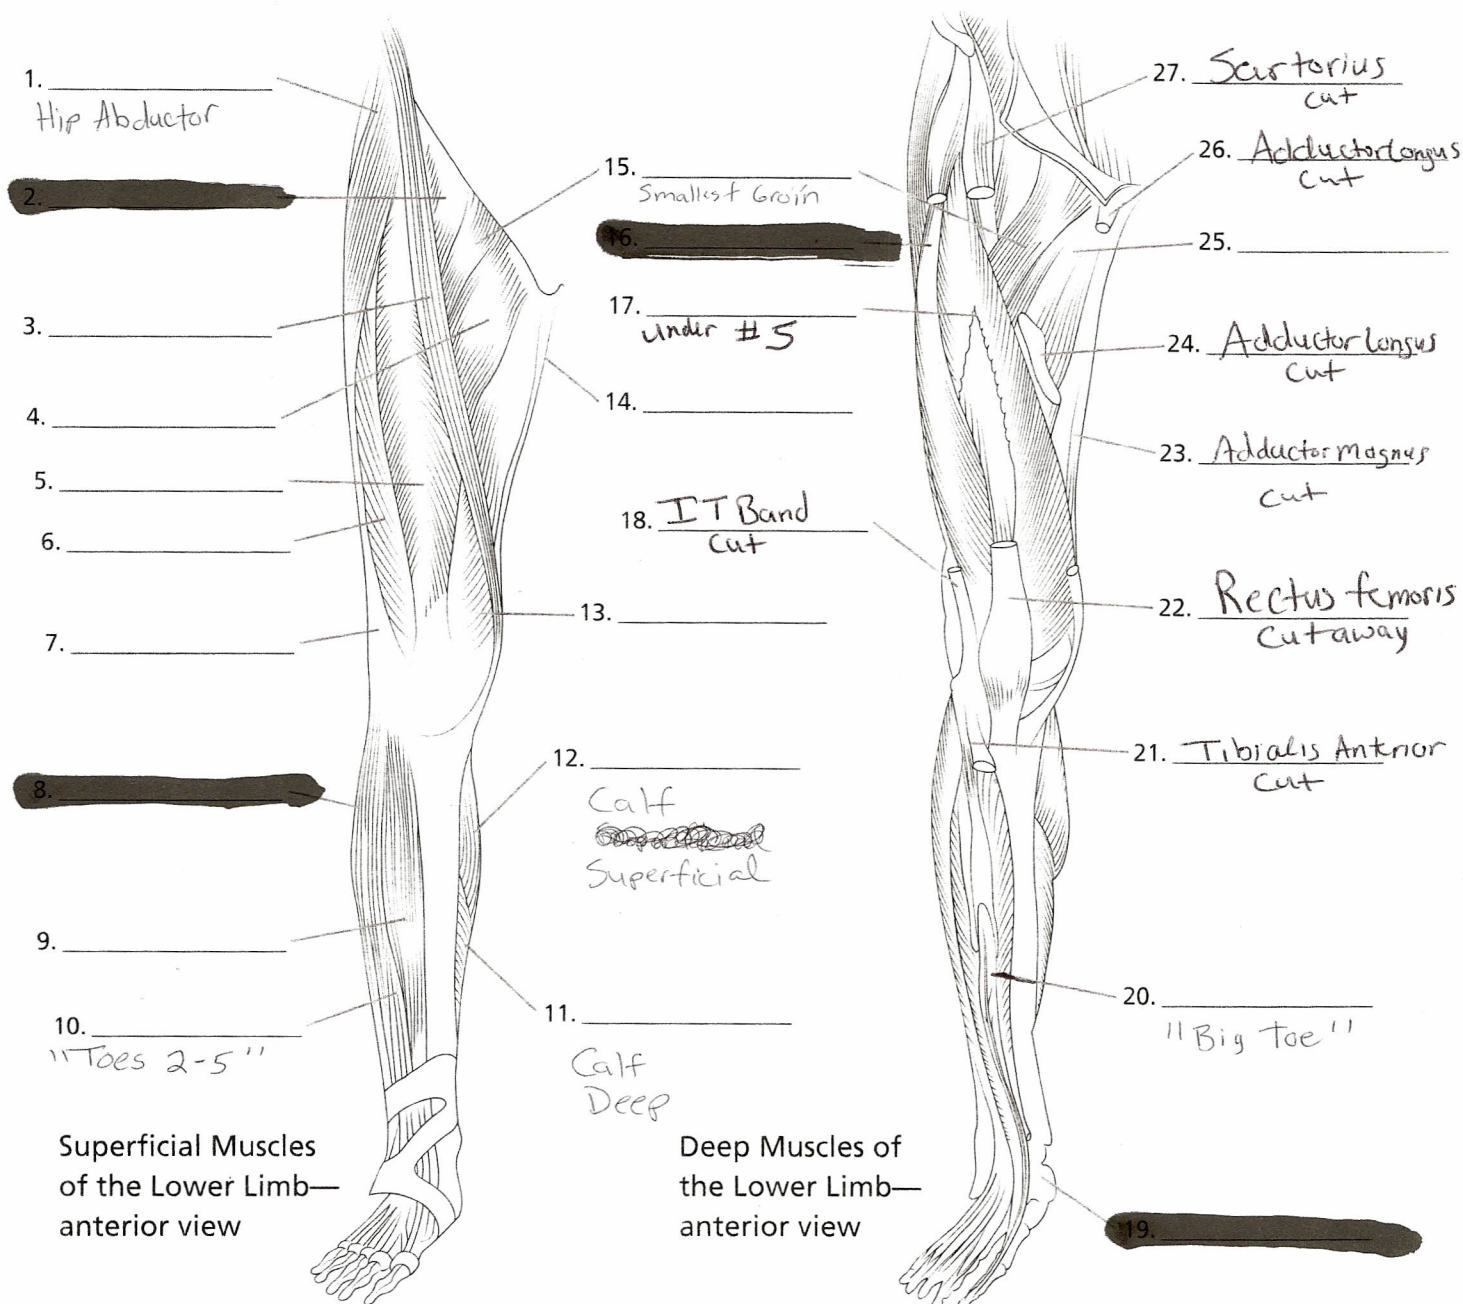 1.
Hip Abductor
2.
3.
4.
5.
6.
7.
8.
9.
10.
"Toes 2-5"
Superficial Muscles
of the Lower Limb—
anterior view
15.
Smallest Groin
16.
17.
under #5
14.
18. IT Band
cut
13.
12.
Calf
Superficial
11.
Calf
Deep
Deep Muscles of
the Lower Limb—
anterior view
27. Sartorius
cut
26. Adductor Longus
cut
25.
24. Adductor Longus
cut
23. Adductor magnus
cut
22. Rectus femoris
cutaway
21. Tibialis Anterior
cut
20.
"Big toe"
19.